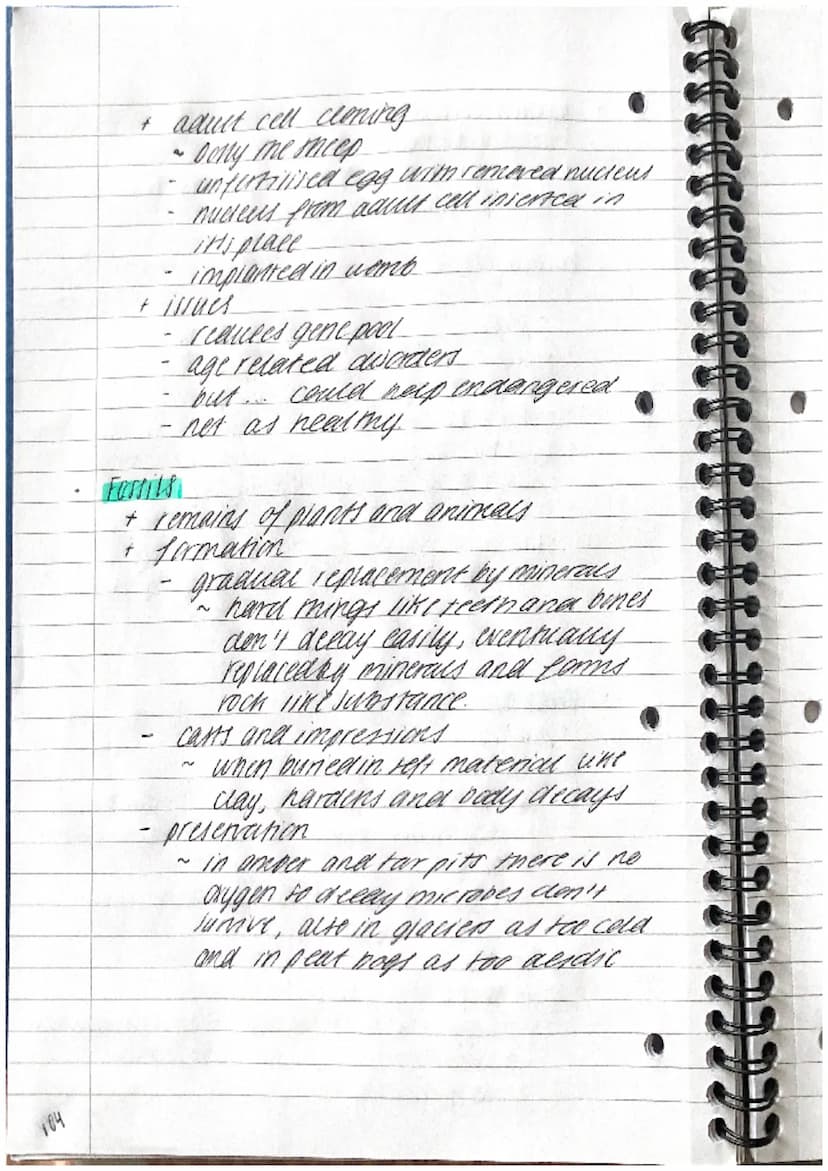 + adult cell cloning
~ Dolly the sheep
- unfertilised egg with removed nucleus
- nucleus from adult cell inserted in
it's place
- implanted in womb
+ issues
- reduces gene pool
- age related disorders
- but ... could help endangered
- not as healthy
· Fossils
+ remains of plants and animals
+ formation
- gradual replacement by minerals
~ hard things like teeth and bones
don't decay easily, eventually
replaced by minerals and forms
rock like substance.
- casts and impressions
~ when buried in soft material like
clay, hardens and body decays
- preservation
~ in amber and tar pits there is no
oxygen so decay microbes don't
survive, also in glaciers as too cold
and in peat bogs as too acidic
104